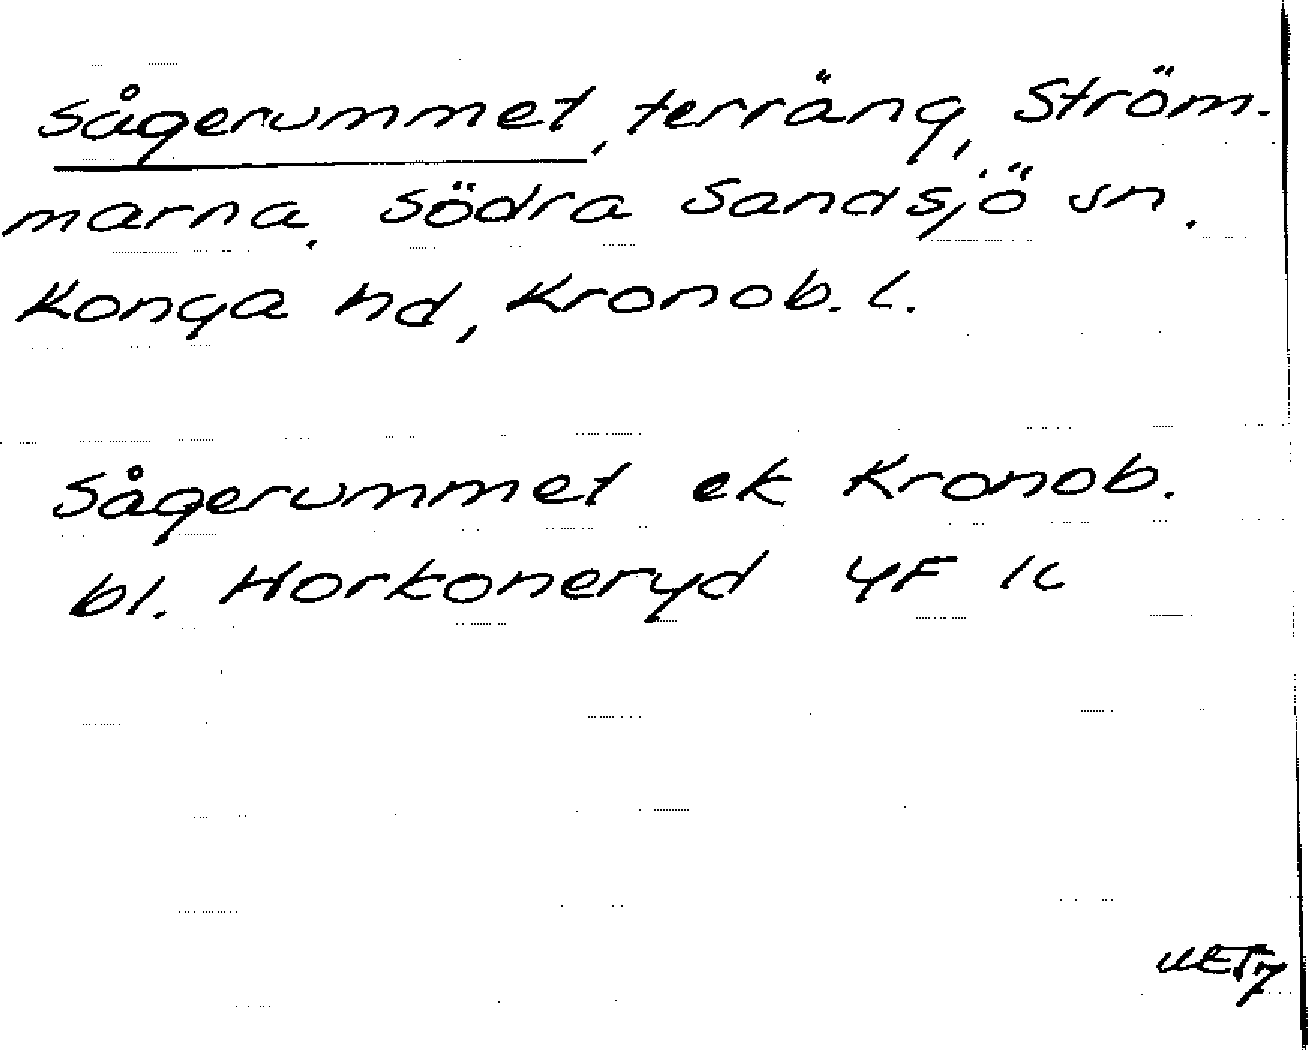 Sågerummet, terräng, Ström-
marna, Södra Sandsjö sn.
Konga hd, Kronob. l.
Sågerummet ek Kronob.
bl. Horkoneryd 4F 1c